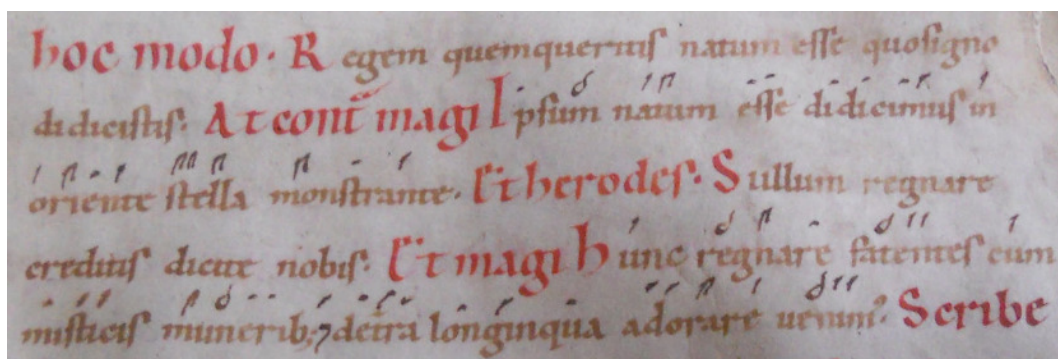 hoc modo. Regem quemqueritis natum esse quosigno
didicistis. At cont̄ magi Ipsum natum esse didicimus in
oriente stella monstrante. Et herodes. Sullum regnare
creditis dicite nobis. Et magi hunc regnare fatentes cum
misticis munerib; ⁊ de tr̄a longinqua adorare uenim᛫ Scribe